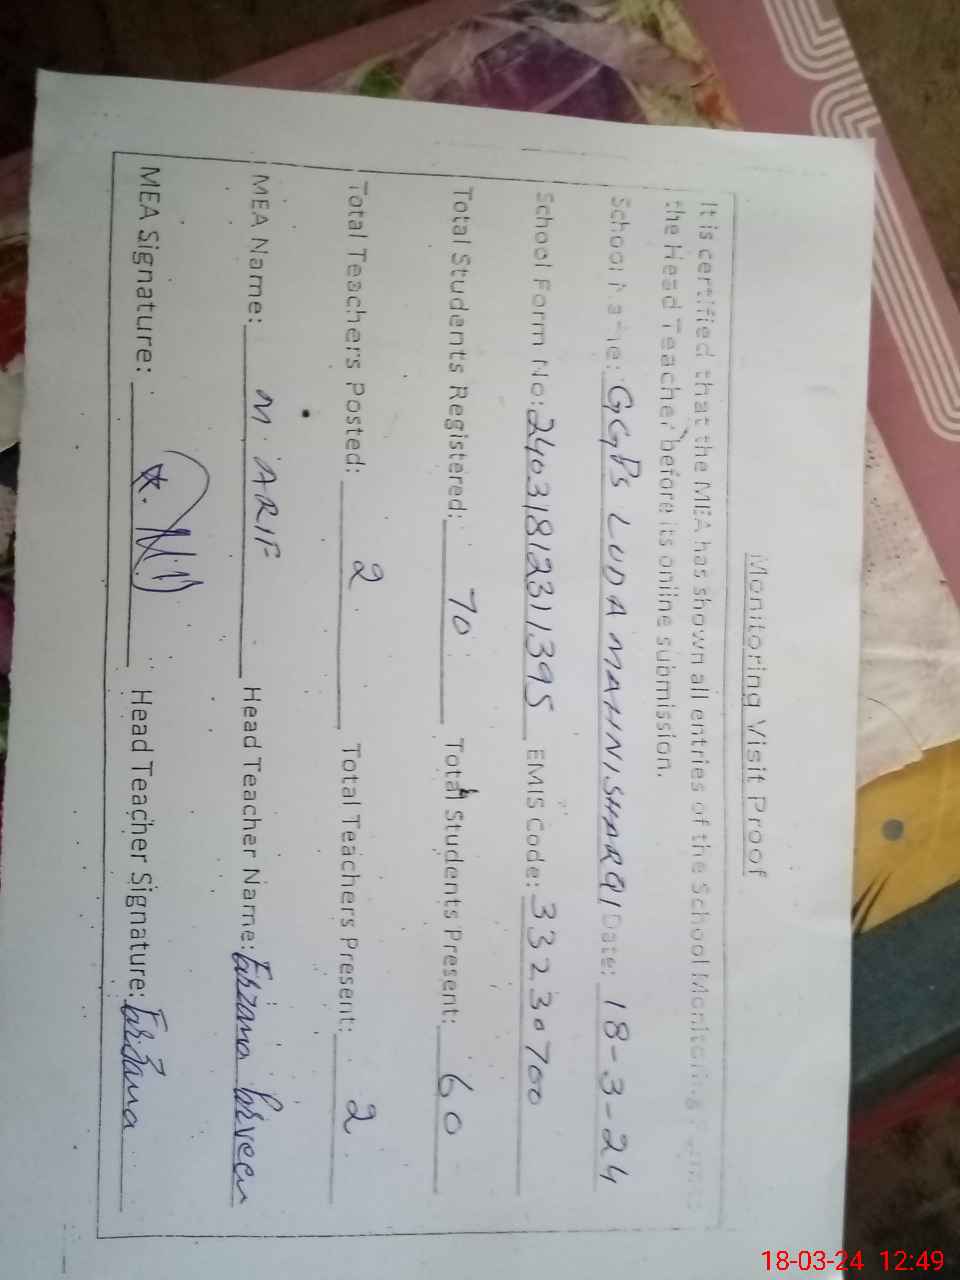 Monitoring Visit Proof
It is certified that the MEA has shown all entries of the School Monitoring
the Head Teacher before its online submission.
School Name: GGPS LUDA MAHNISHARQI Date: 18-3-24
School Form No: 24031812311395 EMIS Code: 33230700
Total Students Registered: 70 Total Students Present: 60
Total Teachers Posted: 2 Total Teachers Present: 2
MEA Name: M. ARIF Head Teacher Name: Farzana Parveen
MEA Signature: Head Teacher Signature: Farzana
18-03-24 12:49